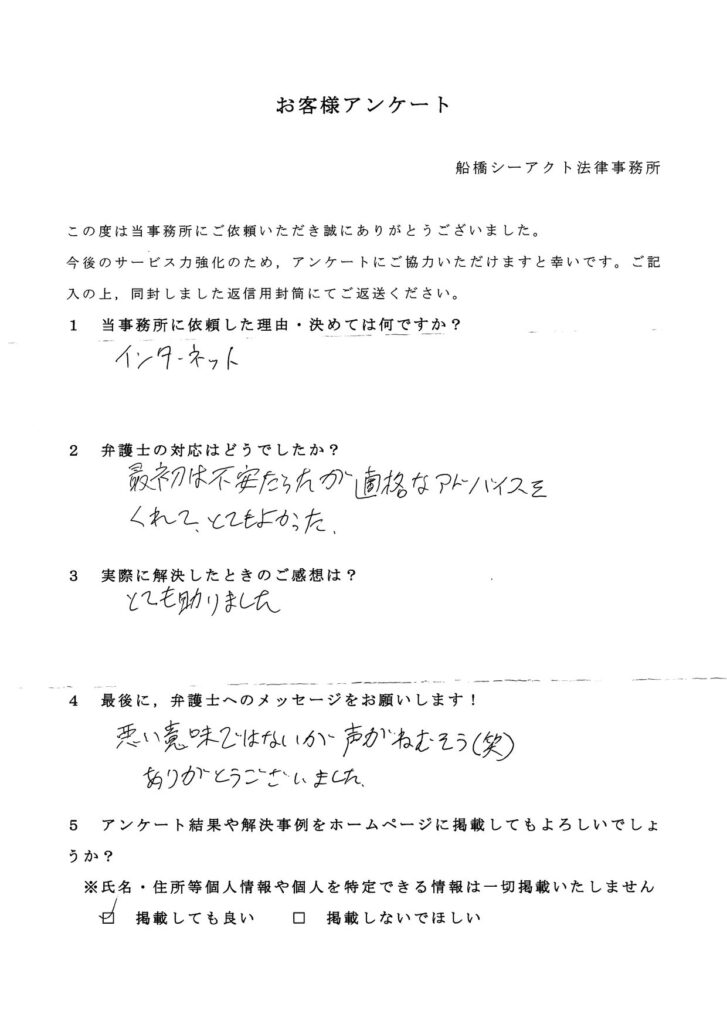 お客様アンケート
船橋シーアクト法律事務所
この度は当事務所にご依頼いただき誠にありがとうございました。
今後のサービス力強化のため，アンケートにご協力いただけますと幸いです。ご記
入の上，同封しました返信用封筒にてご返送ください。
１　当事務所に依頼した理由・決めては何ですか？
インターネット
２　弁護士の対応はどうでしたか？
最初は不安だったが適格なアドバイスを
くれて、とてもよかった、
３　実際に解決したときのご感想は？
とても助りました
４　最後に，弁護士へのメッセージをお願いします！
悪い意味ではないが声がねむそう(笑)
ありがとうございました、
５　アンケート結果や解決事例をホームページに掲載してもよろしいでしょ
うか？
※氏名・住所等個人情報や個人を特定できる情報は一切掲載いたしません
☑　掲載しても良い　　□　掲載しないでほしい